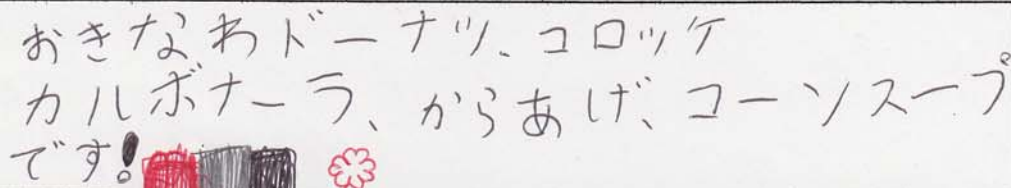 おきなわドーナツ、コロッケ
カルボナーラ、からあげ、コーンスープ
です!